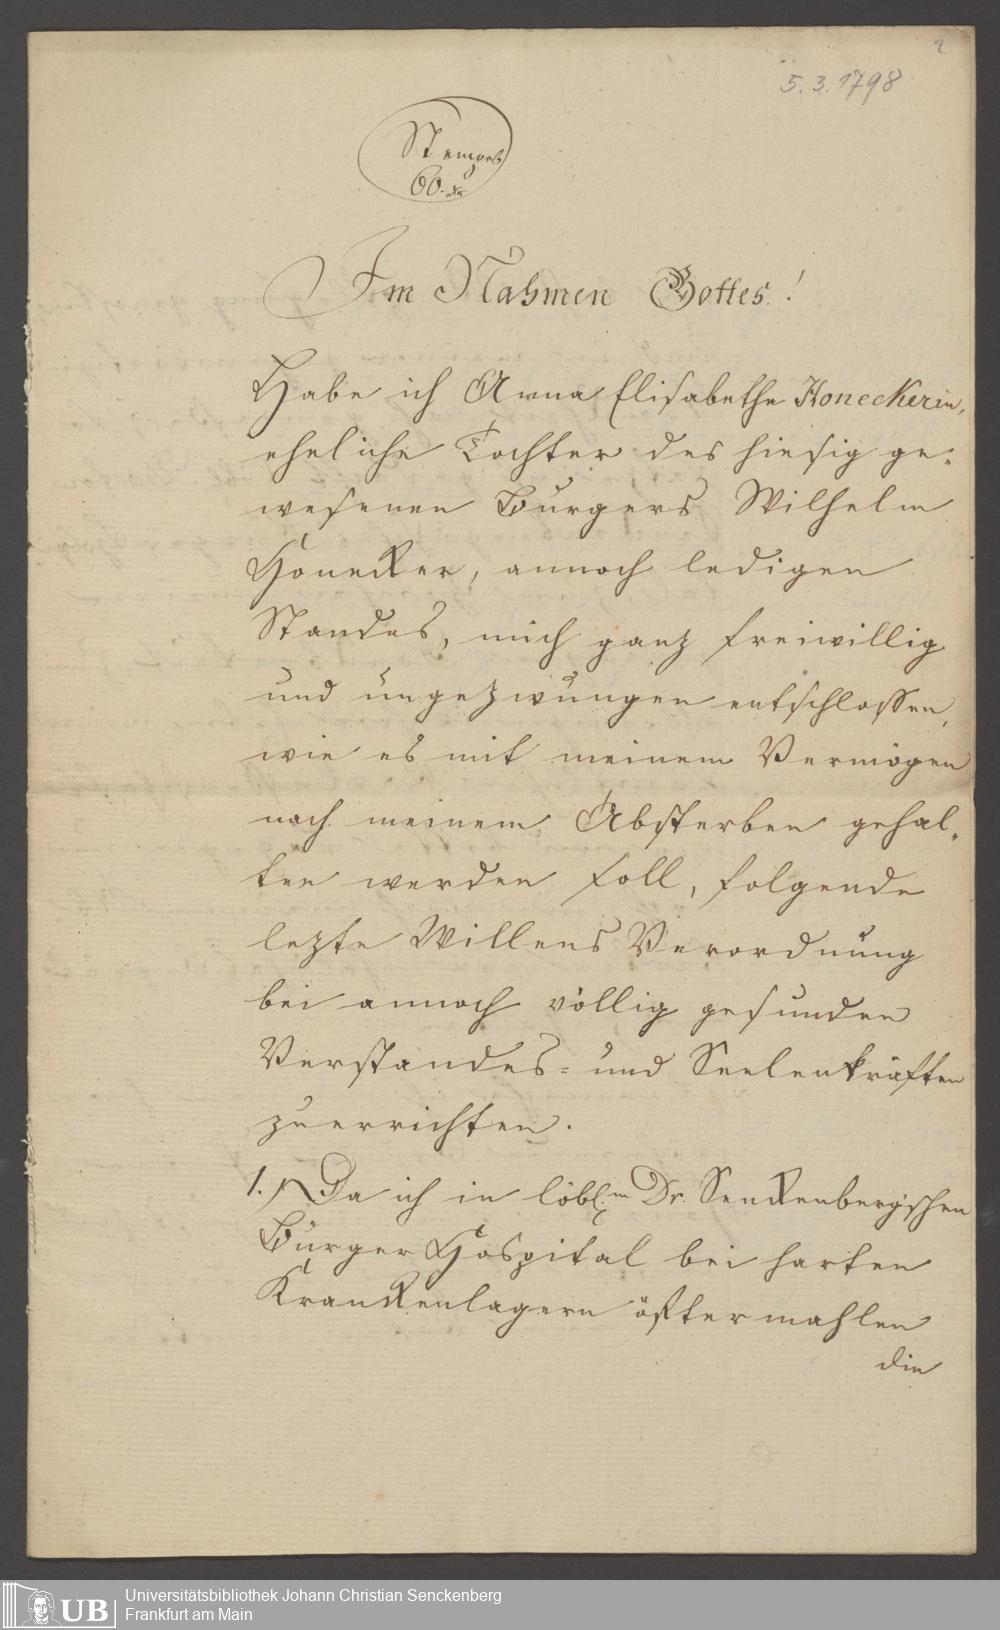 2
5.3.1798
Stempel
60. xr
Im Nahmen Gottes!
Habe ich Anna Elisabetha Honeckerin,
eheliche Tochter des hiesig ge-
wesenen Burgers Wilhelm
Honecker, annoch ledigen
Standes, mich ganz freiwillig
und ungezwungen entschlossen,
wie es mit meinem Vermögen
nach meinem Absterben gehal-
ten werden soll, folgende
lezte Willens Verordnung
bei annoch völlig gesunden
Verstandes- und Seelenkräften
zu errichten.
1. Da ich in löbl:m Dr. Senckenberg'schen
Burger Hospital bei harten
Kranckenlagern öfter mahlen
die
UB
Universitätsbibliothek Johann Christian Senckenberg
Frankfurt am Main